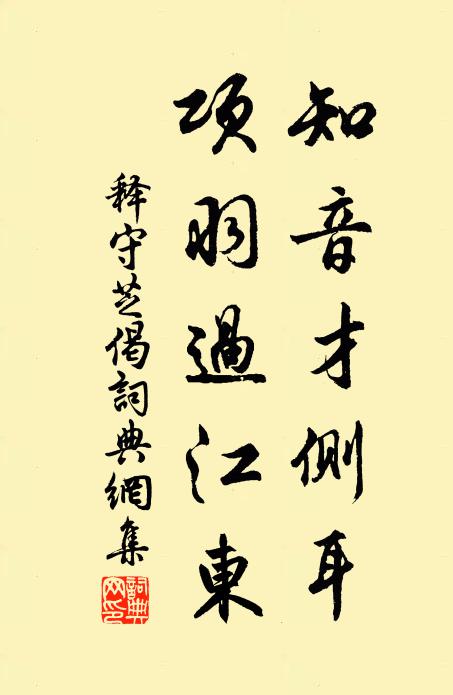 知音才側耳
項羽過江東
释守芝偈詞典網集
詞典
网印